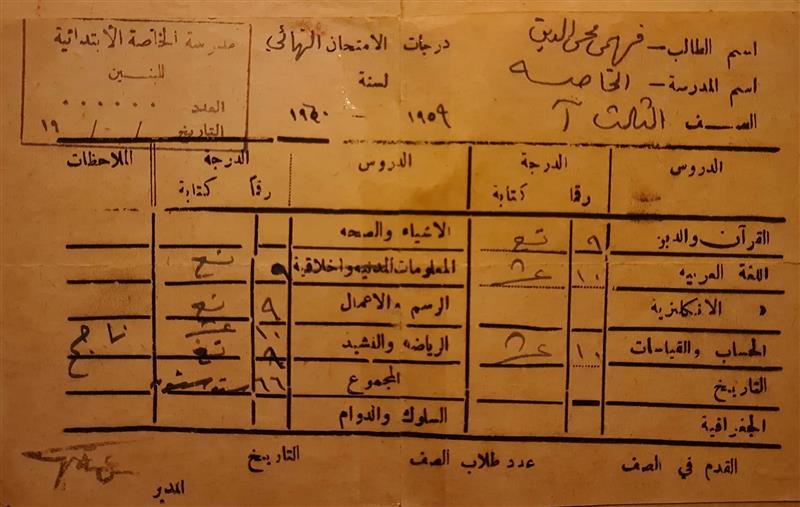 مدرسة الخاصة الابتدائية
للبنين
العدد ......
التاريخ / / ١٩
درجات الامتحان النهائي
لسنة
١٩٥٩ - ١٩٦٠
اسم الطالب - فهمي محي الدين
اسم المدرسة - الخاصه
الصف الثالث آ
الدروس الدرجة الدروس الدرجة الملاحظات
رقما كتابة رقما كتابة
القرآن والدين ٩ تسع الاشياء والصحه
اللغة العربيه ١٠ عشر المعلومات المدنيه واخلاقية ٩ تسع
" الانكليزية الرسم والاعمال ٩ تسع
الحساب والقياسات ١٠ عشر الرياضه والنشيد ٩ تسع ناجح
التاريخ المجموع ٦٦
الجغرافية السلوك والدوام
القدم في الصف عدد طلاب الصف التاريخ
المدير